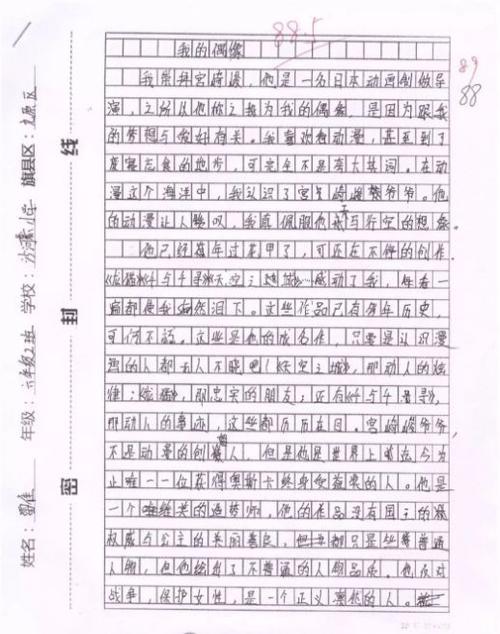 88.5
89
88
我的偶像
我崇拜宫崎骏,他是一名日本动画创做导
演,之所以他称之我为我的偶像,是因为跟我
的梦想与爱好有关。我喜欢看动漫,甚至到了
废寝忘食的地步,可完全不是夸大其词。在动
漫这个海洋中,我认识了宫崎骏爷爷。他
的动漫让人赞叹,我真佩服他天马行空的想象。
他已经年过花甲了,可还在不停的创作。
《龙猫》《千与千寻》《天空之城》……感动了我,每看一
遍都使我潸然泪下。这些作品已有多年历史,
可仍不 这些是他的成名作,只要是认识漫
画的人都无人不晓吧!《天空之城》,那动人的旋
律;《龙猫》,那忠实的朋友;还有《千与千寻》,
那动人的事迹,这些都历历在目。宫崎骏爷爷,
不是动漫的创始人,但是他是世界上 在今为
止唯一一位获得奥斯卡终身 奖的人。他是
一个 的造梦师,他的作品没有国王的
权威与公主的美丽善良,但 都只是些普通
人物,但他绘出了不普通的人物品质。他反对
战争,保护女性,是一个正义 的人。
线
封
密
旗县区:九原区
学校: 小学
年级:六年级2班
姓名: